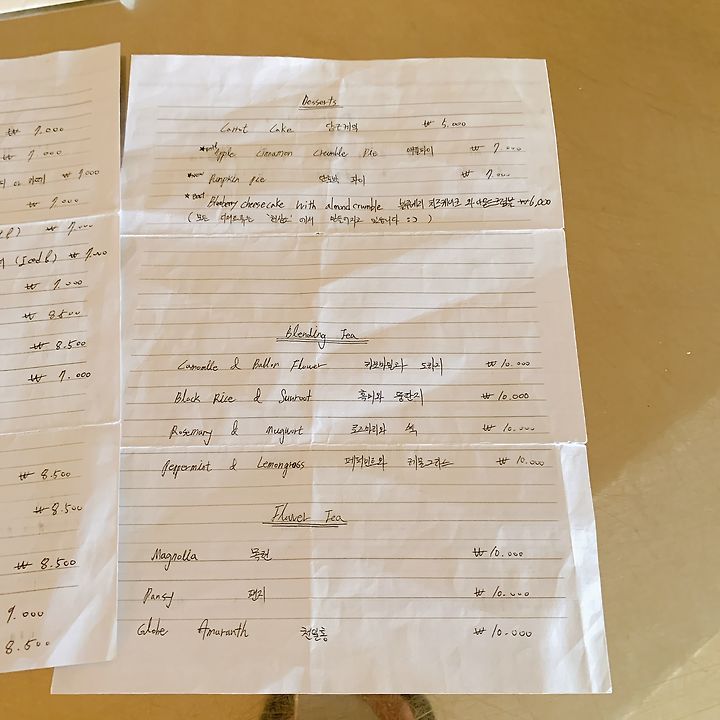 ₩ 7.000
₩ 7.000
₩ 7.000
₩ 7.000
₩ 7.000
(Iced 용) ₩ 7.000
₩ 7.000
₩ 8.500
₩ 8.500
₩ 7.000
₩ 8.500
₩ 8.500
₩ 8.500
9.000
8.500
Desserts
Carrot Cake 당근케익 ₩ 5.000
Apple Cinnamon Crumble Pie 애플파이 ₩ 7.000
Pumpkin pie 단호박 파이 ₩ 7.000
*Best Blueberry cheesecake with almond crumble 블루베리 치즈케이크 와 아몬드크럼블 ₩6,000
(모든 디저트는 에서 만들어지고 있습니다 :) )
Blending Tea
Camomille & Ballon Flower 카모마일과 도라지 ₩ 10.000
Black Rice & Sunroot 흑미와 뚱딴지 ₩ 10.000
Rosemary & Mugwort 로즈마리와 쑥 ₩ 10.000
Peppermint & Lemongrass 페퍼민트와 레몬그라스 ₩ 10.000
Flower Tea
Magnolia 목련 ₩ 10.000
Pansy 팬지 ₩ 10.000
Globe Amaranth 천일홍 ₩ 10.000